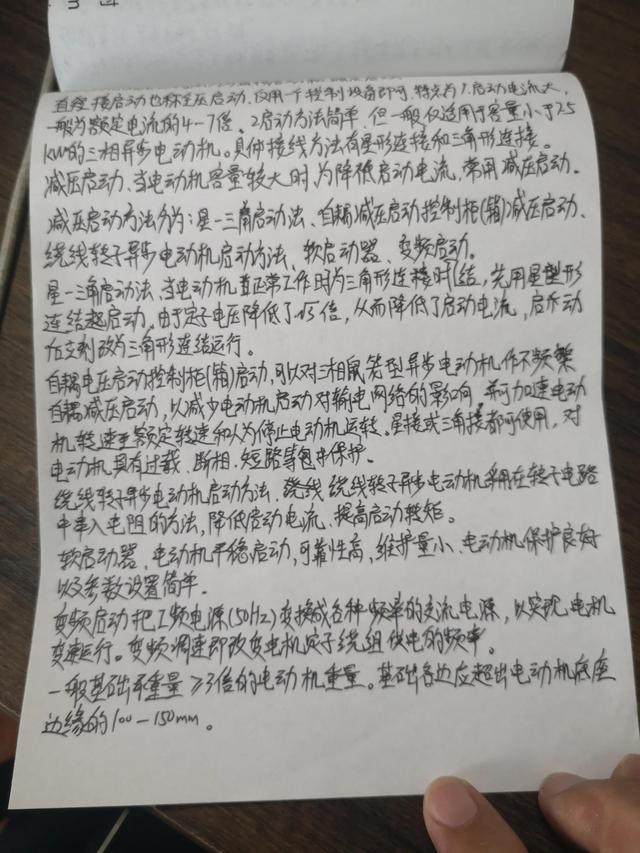 直接接启动也称全压启动.仅用一个控制设备即可.特点为1.启动电流大,
一般为额定电流的4-7倍。2启动方法简单.但一般仅适用于容量小于7.5
KW的三相异步电动机。具体接线方法有星形连接和三角形连接。
减压启动、当电动机容量较大时,为降低启动电流,常用减压启动.
减压启动方法分为:星-三角启动法、自耦减压启动控制柜(箱)减压启动、
绕线转子异步电动机启动方法、软启动器、变频启动。
星-三角启动法、当电动机在正常工作时为三角形连接时结,先用星型形
连结起启动,由于定子电压降低了√3倍,从而降低了启动电流,启动
后立刻改为三角形连结运行。
自耦电压启动控制柜(箱)启动,可以对三相鼠笼型异步电动机作不频繁
自耦减压启动,以减少电动机启动对输电网络的影响,并可加速电动
机转速至额定转速和人为停止电动机运转。星接或三角接都可使用,对
电动机具有过载、断相、短路等集中保护。
绕线转子异步电动机启动方法、绕线 绕线转子异步电动机采用在转子电路
中串入电阻的方法,降低启动电流、提高启动转矩。
软启动器、电动机平稳启动,可靠性高,维护量小、电动机保护良好
以及参数设置简单.
变频启动把工频电源(50Hz)变换成各种频率的交流电源,以实现电机
变速运行。变频调速即改变电机定子绕组供电的频率。
一般基础重量≥3倍的电动机重量。基础各边应超出电动机底座
边缘的100-150mm。